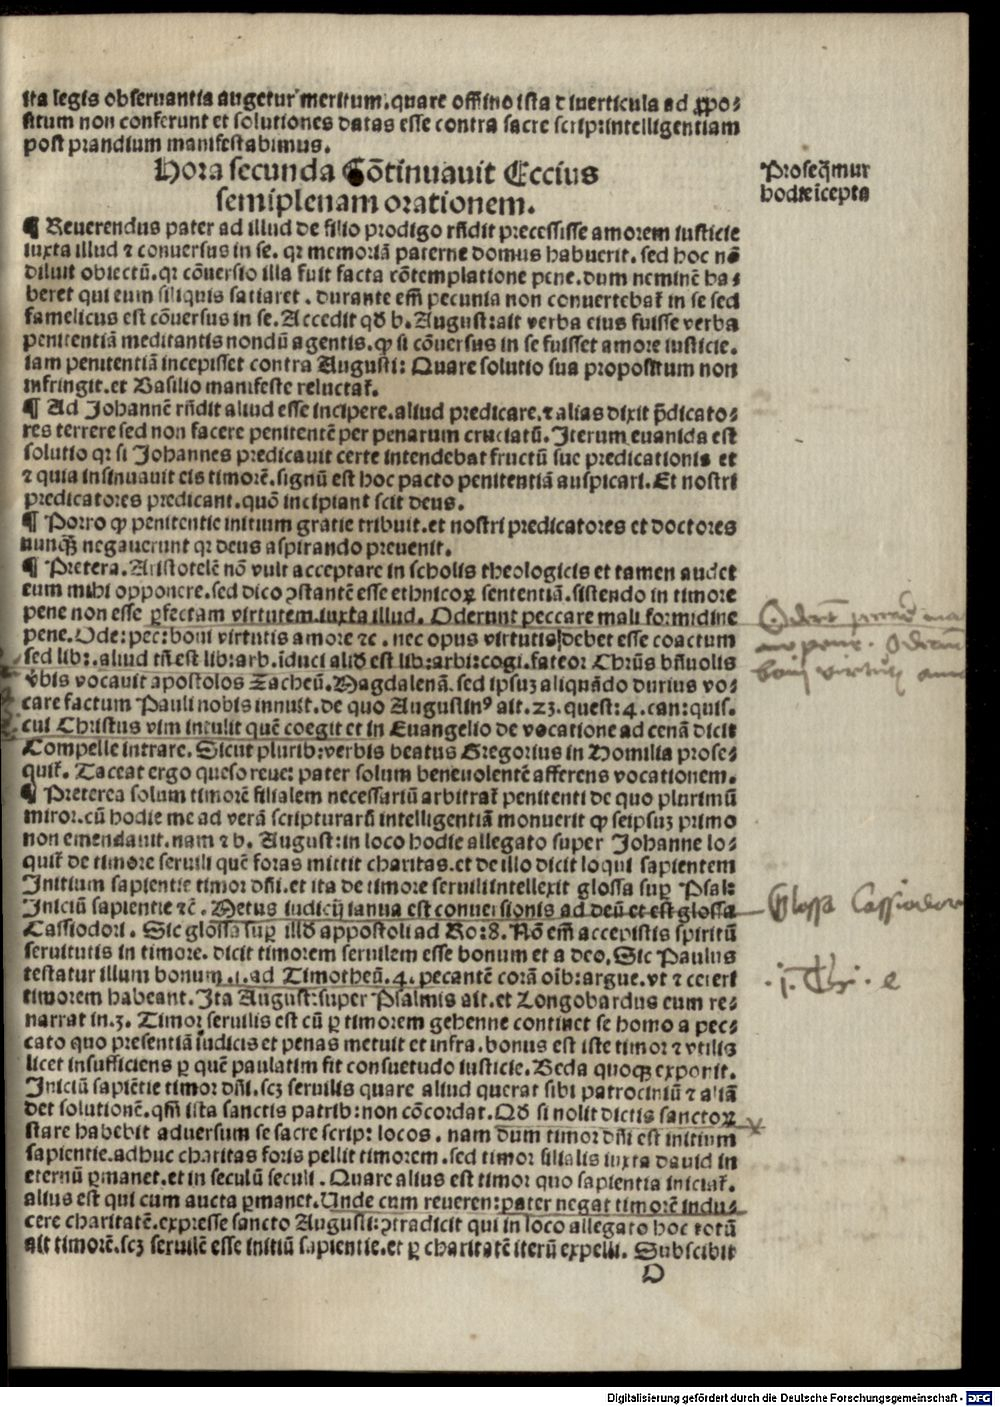 ita legis obseruantia augetur meritum. quare offino ista diuerticula ad ꝓpo⸗
situm non conferunt et solutiones datas esse contra sacre scrip: intelligentiam
post prandium manifestabimus.
Hora secunda Cōtinuauit Eccius
semiplenam orationem.
Proseq̄mur
hodie īcepta
¶ Reuerendus pater ad illud de filio prodigo rn̄dit precessisse amorem iusticie
iuxta illud ⁊ conuersus in se. qꝛ memoriā paterne domus habuerit. sed hoc nō
diluit obiectū. qꝛ cōuersio illa fuit facta cōtemplatione pene. dum neminē ha⸗
beret qui eum siliquis satiaret. durante em̄ pecunia non conuertebat̄ in se sed
famelicus est cōuersus in se. Accedit qđ b. August: ait verba eius fuisse verba
penitentiā meditantis nondū agentis. ꝙ si cōuersus in se fuisset amore iusticie.
iam penitentiā incepisset contra Augusti: Quare solutio sua propositum non
infringit. et Basilio manifeste reluctat̄.
¶ Ad Johannē rn̄dit aliud esse incipere. aliud predicare. ⁊ alias dixit p̄dicato⸗
res terrere sed non facere penitentē per penarum cruciatū. Iterum euanida est
solutio qꝛ si Johannes predicauit certe intendebat fructū sue predicationis et
⁊ quia insinuauit eis timorē. signū est hoc pacto penitentiā auspicari. Et nostri
predicatores predicant. quō incipiant scit deus.
¶ Porro ꝙ penitentie initium gratie tribuit. et nostri predicatores et doctores
nunqꝫ negauerunt qꝛ deus aspirando preuenit.
¶ Pretera. Aristotelē nō vult acceptare in scholis theologicis et tamen audet
eum mihi opponere. sed dico ꝯstantē esse ethnicoꝝ sententiā. sistendo in timore
pene non esse ꝑfectam virtutem iuxta illud. Oderunt peccare mali formidine
pene. Ode: pec: boni virtutis amore ⁊c. nec opus virtutis debet esse coactum
sed lib:. aliud tn̄ est lib: arb. īduci aliđ est lib: arbi: cogi. fateor Chrūs bn̄uolis
v̄bis vocauit apostolos Zacheū. Magdalenā. sed ipsuꝫ aliquādo durius vo⸗
care factum Pauli nobis innuit. de quo Augustinꝰ ait. 23. quest: 4. can: quis.
cui Christus vim intulit quē coegit et in Euangelio de vocatione ad cenā dicit
Compelle intrare. Sicut plurib: verbis beatus Gregorius in Homilia prose⸗
quit̄. Taceat ergo queso reue: pater solum beneuolentē afferens vocationem.
¶ Preterea solum timorē filialem necessariū arbitrat̄ penitenti de quo plurimū
miror. cū hodie me ad verā scripturarū intelligentiā monuerit ꝙ seipsuꝫ primo
non emendauit. nam ⁊ b. August: in loco hodie allegato super Johanne lo⸗
quit̄ de timore seruili quē foras mittit charitas. et de illo dicit loqui sapientem
Initium sapientie timor dn̄i. et ita de timore seruili intellexit glossa suꝑ Psal:
Iniciū sapientie ⁊c̄. Metus iudicij ianua est conuersionis ad deū et est glossa
Cassiodori. Sic glossa suꝑ illđ appostoli ad Ro: 8. Nō em̄ accepistis spiritū
seruitutis in timore. dicit timorem seruilem esse bonum et a deo. Sic Paulus
testatur illum bonum .1. ad Timotheū. 4. pecantē corā oīb: argue. vt ⁊ ceteri
timorem habeant. Ita August: super Psalmis ait. et Longobardus eum re⸗
narrat in. 3. Timor seruilis est cū ꝑ timorem gehenne continet se homo a pec⸗
cato quo presentiā iudicis et penas metuit et infra. bonus est iste timor ⁊ vtilis
licet insufficiens ꝑ quē paulatim fit consuetudo iusticie. Beda quoqꝫ exponit.
Iniciū sapiētie timor dn̄i. scꝫ seruilis quare aliud querat sibi patrociniū ⁊ aliā
det solutionē. qm̄ ista sanctis patrib: non cōcordat. Qđ si nolit dictis sanctoꝝ
stare habebit aduersum se sacre scrip: locos. nam dum timor dn̄i est initium
sapientie. adhuc charitas foris pellit timorem. sed timor filialis iuxta dauid in
eternū ꝑmanet. et in seculū seculi. Quare alius est timor quo sapientia iniciat̄.
alius est qui cum aucta ꝑmanet. Unde cum reueren: pater negat timorē indu⸗
cere charitatē. expresse sancto Augusti: ꝯtradicit qui in loco allegato hoc totū
ait timorē. scꝫ seruilē esse initiū sapientie. et ꝑ charitatē iterū expelli. Subscibit
D
Glossa Cassiodori
Digitalisierung gefördert durch die Deutsche Forschungsgemeinschaft - DFG